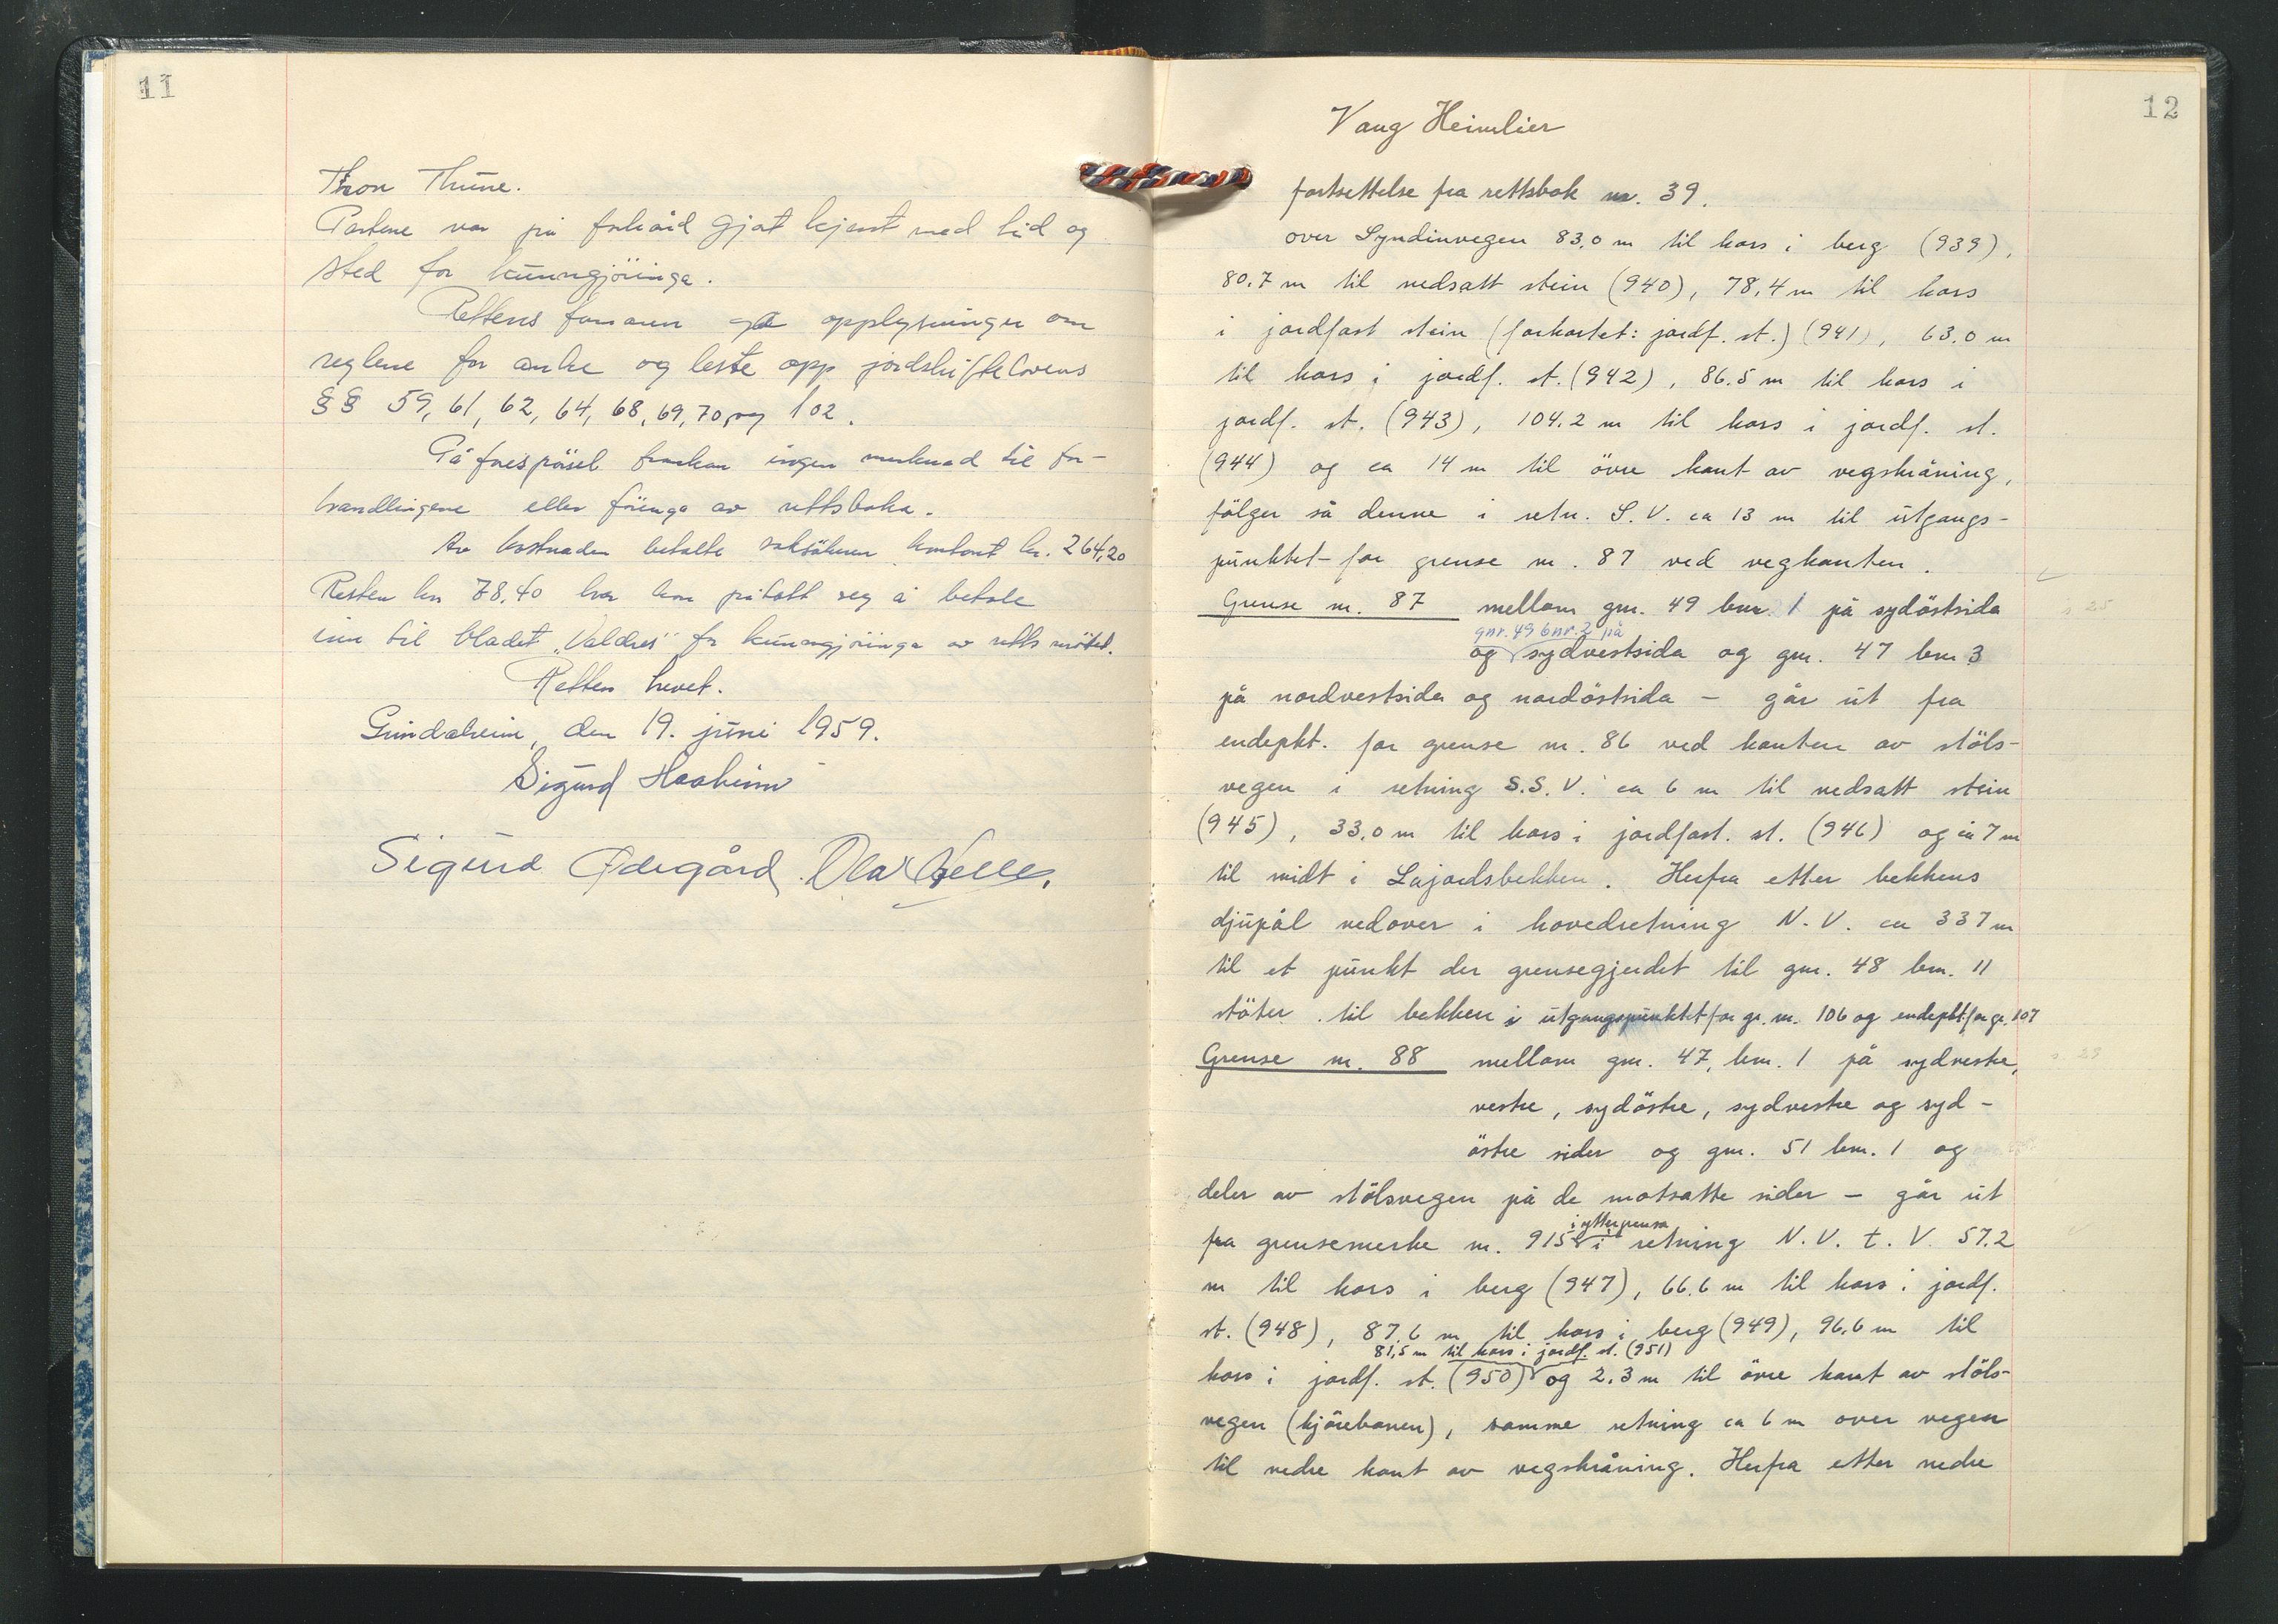 11
Thune.
Partene var på forhånd gjort kjent med tid og
sted for kunngjöringa.
Rettens formann ga opplysninger om
reglene for anke og leste opp jordskiftelovens
§§ 59, 61, 62, 64, 68, 69, 70 og 102.
På forespörsel framkom ingen merknad til for-
handlingene eller föringa av rettsboka.
Av kostnaden betalte saksökeren kontant kr. 264,20
Resten kr 78,40 har han påtatt seg å betale
inn til bladet „Valdres" for kunngjöringa av rettsmötet.
Retten hevet.
Grindaheim, den 19. juni 1959.
Sigurd Haaheim
Sigurd Ødegård. Ola Kvelle.
12
Vang Heimlier
fortsettelse fra rettsbok nr. 39.
over Syndinvegen 83,0 m til kors i berg (939),
80.7 m til nedsatt stein (940), 78,4 m til kors
i jordfast stein (forkortet: jordf. st.) (941), 63.0 m
til kors i jordf. st. (942), 86.5 m til kors i
jordf. st. (943), 104.2 m til kors i jordf. st.
(944) og ca 14 m til övre kant av vegskråning,
fölger så denne i retn. S.V. ca 13 m til utgangs-
punktet for grense nr. 87 ved vegkanten.
Grense nr. 87 mellom gnr. 49 bnr. 1 på sydöstsida
s. 25
gnr. 49 bnr. 2 på
og sydvestsida og gnr. 47 bnr 3
på nordvestsida og nordöstsida – går ut fra
endepkt. for grense nr. 86 ved kanten av stöls-
vegen i retning S.S.V. ca 6 m til nedsatt stein
(945), 33.0 m til kors i jordfast. st. (946) og ca 7 m
til midt i Lajordsbekken. Herfra etter bekkens
djupål nedover i hovedretning N.V. ca 337 m
til et punkt der grensegjerdet til gnr. 48 bnr. 11
stöter til bekken i utgangspunktet for gr. nr. 106 og endepkt. for gr. 107
Grense nr. 88 mellom gnr. 47, bnr. 1 på sydvestre,
vestre, sydöstre, sydvestre og syd-
östre sider og gnr. 51 bnr. 1 og
deler av stölsvegen på de motsatte sider – går ut
i yttergrensa
fra grensemerke nr. 915 i retning N.V. t. V. 57.2
m til kors i berg (947), 66.6 m til kors i jordf.
st. (948), 87.6 m til kors i berg (949), 96.6 m til
81,5 m til kors i jordf. st. (951)
kors i jordf. st. (950) og 2.3 m til övre kant av stöls-
vegen (kjörebanen), samme retning ca 6 m over vegen
til nedre kant av vegskråning. Herfra etter nedre